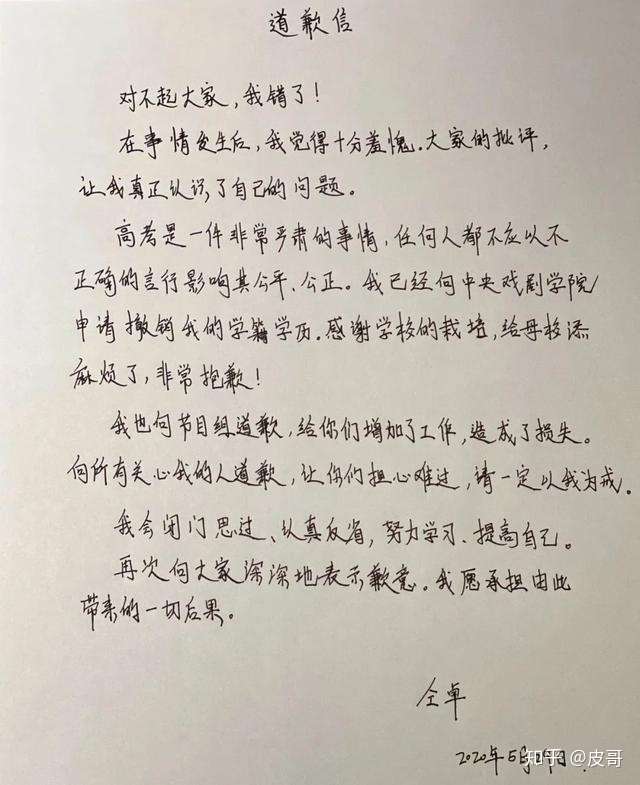 道歉信
对不起大家，我错了！
在事情发生后，我觉得十分羞愧。大家的批评，
让我真正认识了自己的问题。
高考是一件非常严肃的事情，任何人都不应以不
正确的言行影响其公平、公正。我已经向中央戏剧学院
申请撤销我的学籍学历。感谢学校的栽培，给母校添
麻烦了，非常抱歉！
我也向节目组道歉，给你们增加了工作，造成了损失。
向所有关心我的人道歉，让你们担心难过，请一定以我为戒。
我会闭门思过、认真反省，努力学习、提高自己。
再次向大家深深地表示歉意。我愿承担由此
带来的一切后果。
仝卓
2020年5月
知乎 @皮哥